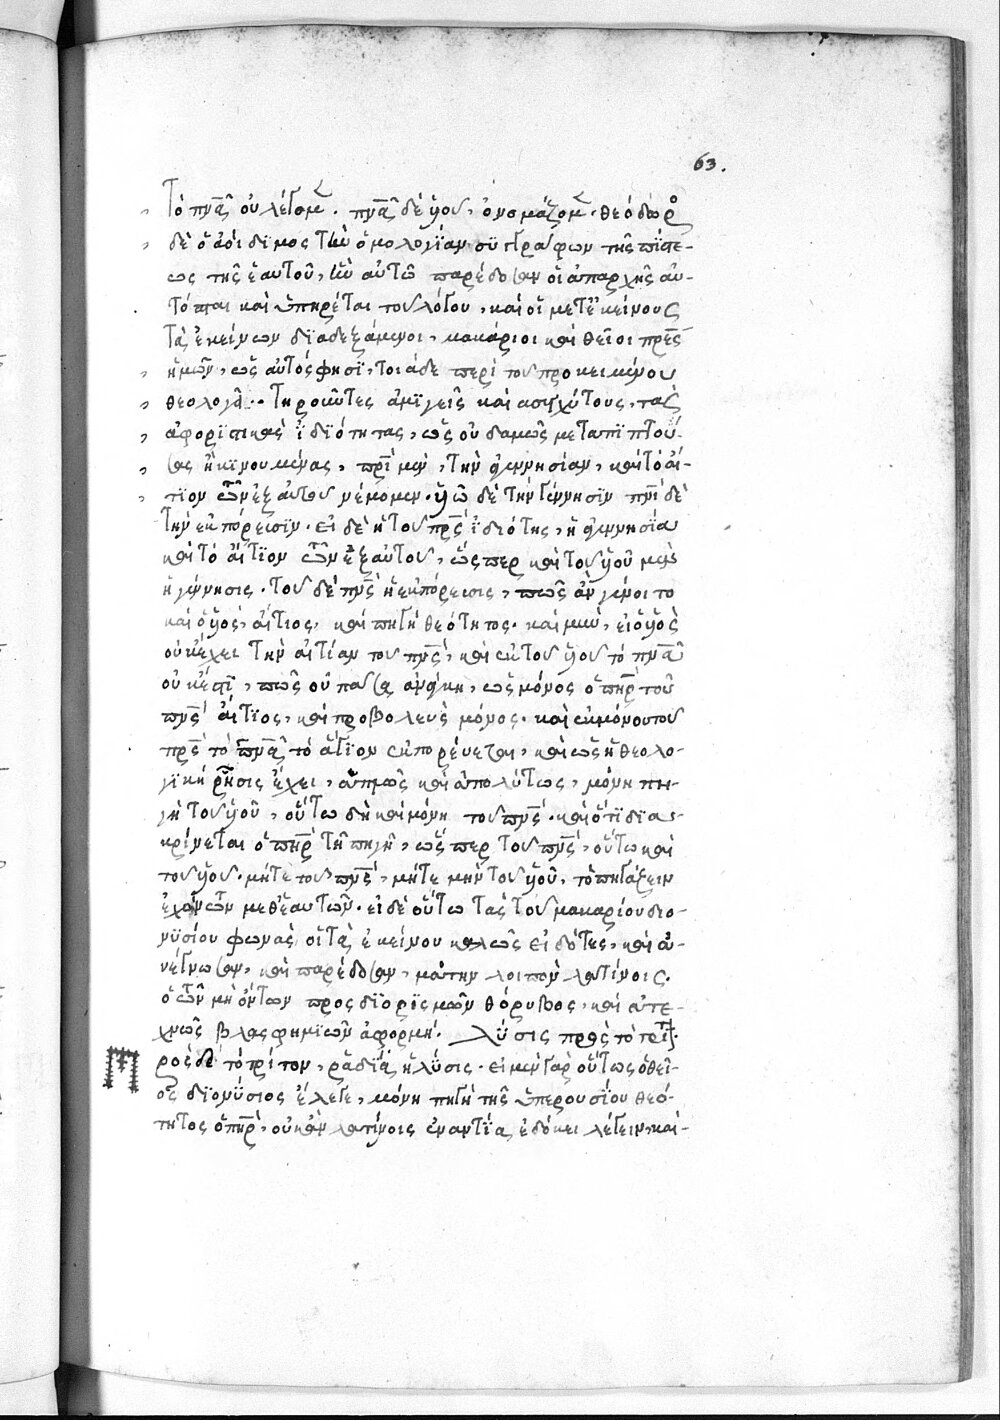 63.
Τὸ πνᾶ οὐ λέγομ. πνᾶ δὲ ὑοῦ, ὀνομάζομ. θεόδωρο
δὲ ὁ ἀοίδϊμος τὴν ὁμολογίαν συγγράφων τῆς πίστε-
ως τῆς ἑαυτοῦ, ἣν αὐτῶ παρέδοσαν οἱ ἀπαρχῆς αὐ-
τόπται καὶ ὑπηρέται τοῦ λόγου, καὶ οἱ μετ' ἐκείνους
τὰ ἐκείνων διαδεξάμενοι, μακάριοι καὶ θεῖοι πρες
ἡμῶν, ὡς αὐτός φησϊ, τοιάδε περὶ τοῦ προκειμένου
θεολογεῖ.. Τηροῦντες ἀμϊγεῖς καὶ ασυγχύτους, τὰς
ἀφοριστικὰς ἰδιότητας, ὡς οὐδαμῶς μεταπϊπτού-
σας ἢ κϊνουμένας, πρὶ μὲν, τὴν ἀγεννησίαν, καὶ τὸ αἴ-
τϊον τῶν ἐξ αὐτοῦ νέμομεν. ὑῶ δὲ τὴν γέννησϊν πνϊ δὲ
τὴν ἐκπόρευσϊν. εἰ δὲ ἡ τοῦ πρς ἰδιότης, ἡ ἀγεννησία
καὶ τὸ αἴτϊον τῶν ἐξ αὐτοῦ, ὥςπερ καὶ τοῦ ὑοῦ μὲν
ἡ γέννησις. τοῦ δὲ πνς ἡ ἐκπόρευσις, πῶς ἂν γένοιτο
καὶ ὁ ὑὸς, αἴτιος, καὶ πηγὴ θεότητος. καὶ μὴν, εἰ ὁ ὑὸς
οὐκ ἔχει τὴν αἰτίαν τοῦ πνς, καὶ ἐκ τοῦ ὑοῦ τὸ πνᾶ
οὐκ ἔστϊ, πῶς οὐ πᾶσα ἀνάγκη, ὡς μόνος ὁ πηρ τοῦ
πνς αἴτϊος, καὶ προβολεὺς μόνος. καὶ ἐκ μόνου τοῦ
πρς τὸ πνᾶ τὸ ἅγϊον ἐκπορεύεται, καὶ ὡς ἡ θεολο-
γϊκὴ ῥῆσις ἔχει, ἁπλῶς καὶ ἀπολύτως, μόνη πη-
γὴ τοῦ ὑοῦ, οὕτω δὴ καὶ μόνη τοῦ πνς. καὶ ὅτϊ δϊα-
κρίνεται ὁ πηρ τῆ πηγῆ, ὥςπερ τοῦ πνς, οὕτω καὶ
τοῦ ὑοῦ. μήτε τοῦ πνς, μήτε μὴν τοῦ ὑοῦ, τὸ πηγάζειν
ἐχόντων μεθ' ἑαυτῶν. εἰ δὲ οὕτω τὰς τοῦ μακαρίου διο-
νϋσίου φωνὰς οἱ τὰ ἐκείνου καλῶς εἰδότες, καὶ ἀ-
νέγνωσαν, καὶ παρέδοσαν, μάτην λοιπὸν λατίνοις.
ὁ τῶν μὴ ὄντων προςδιορισμῶν θόρυβος, καὶ ἀτε-
χνῶς βλασφημϊῶν ἀφορμή. Λύσις πρὸς τὸ τρίτ.
Πρὸς δὲ τὸ τρίτον, ῥαδία ἡ λύσις. εἰ μὲν γὰρ οὕτως ὁ θεῖ-
ος διονύσιος ἔλεγε, μόνη πηγὴ τῆς ὑπερουσίου θεό-
τητος ὁ πηρ, οὐκ ἂν λατίνοις ἐναντία ἐδόκει λέγειν, καὶ-